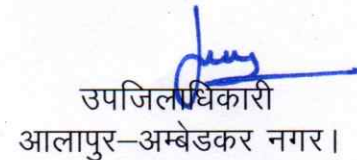 उपजिलाधिकारी
आलापुर–अम्बेडकर नगर।